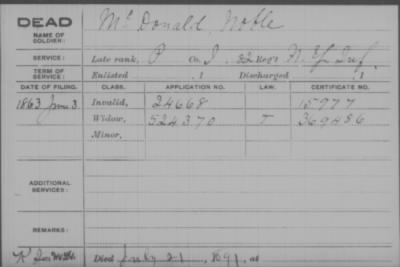 DEAD
NAME OF SOLDIER:
McDonald, Noble
SERVICE:
Late rank, P Co. I, 52 Reg't N.Y. Inf
TERM OF SERVICE:
Enlisted , 1 Discharged , 1
DATE OF FILING. CLASS. APPLICATION NO. LAW. CERTIFICATE NO.
1863 June 3 Invalid, 24668 15977
Widow, 524370 T 369486
Minor,
ADDITIONAL SERVICES:
REMARKS:
Died July 21, 1891, at